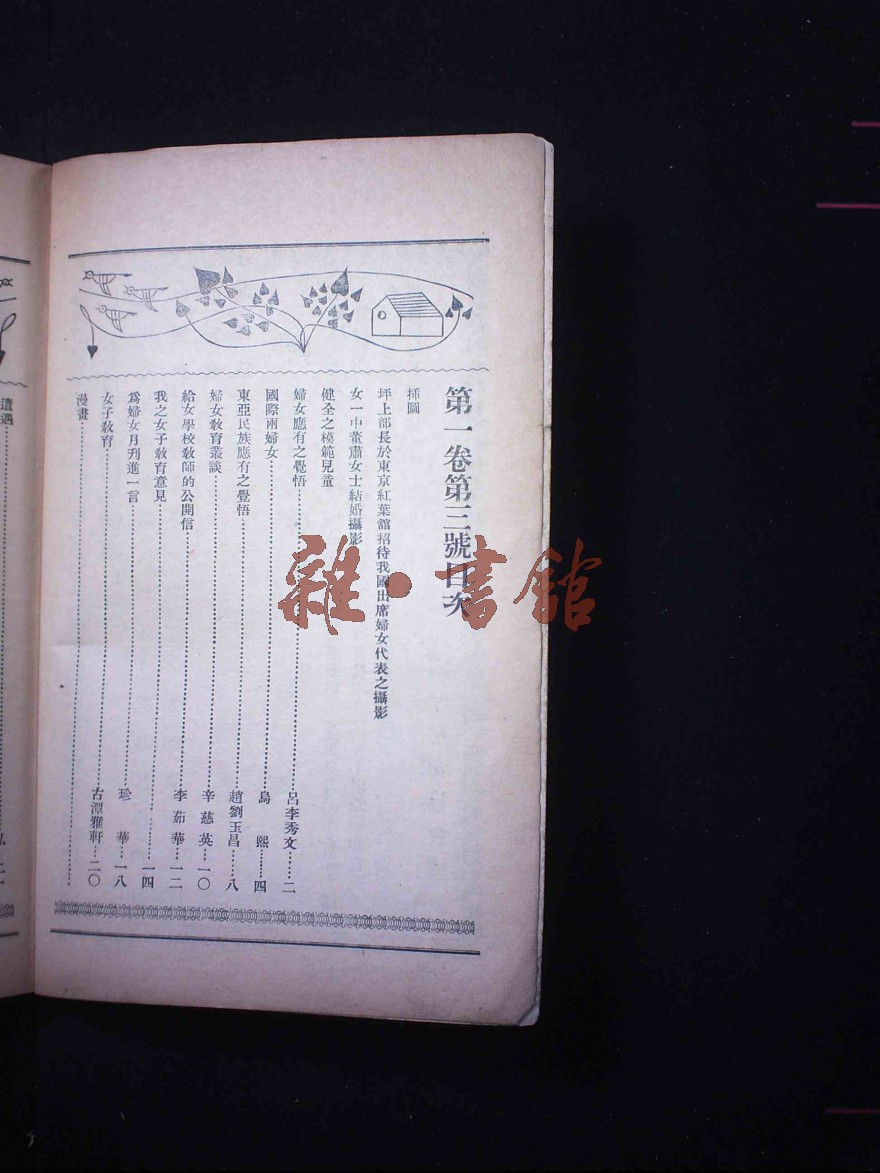 第一卷第三號目次
插圖
坪上部長於東京紅葉舘招待我國出席婦女代表之攝影
女一中董肅女士結婚攝影
健全之模範兒童
婦女應有之覺悟 呂李秀文 二
國際兩婦女 烏熙 四
東亞民族應有之覺悟 趙劉玉昌 八
婦女教育叢談 辛慈英 一〇
給女學校教師的公開信 李茹華 一二
我之女子教育意見 一四
為婦女月刊進一言 珍華 一八
女子教育 古潭雅軒 二〇
漫畫
遭遇
雜·書舘